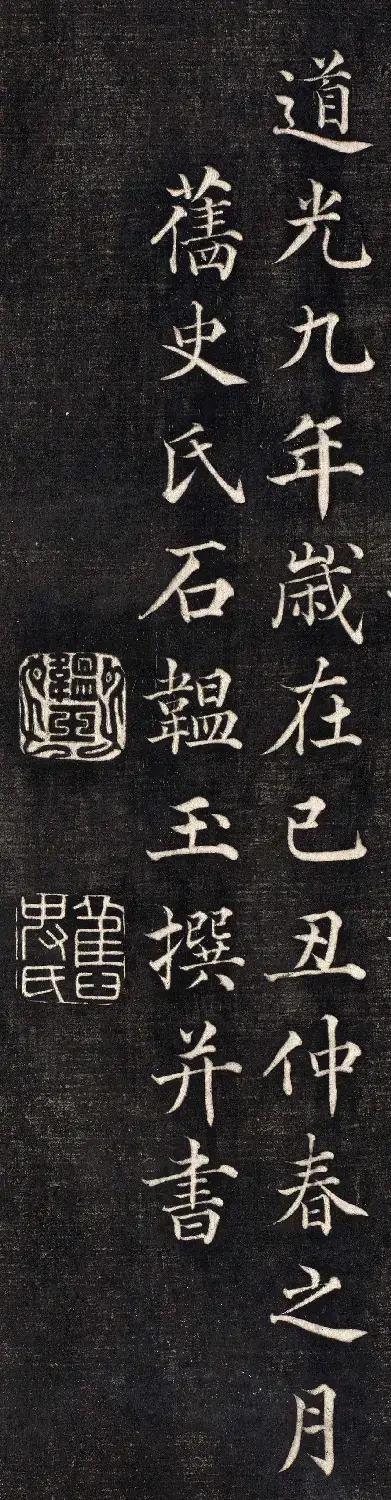 道光九年歲在己丑仲春之月
舊史氏石韞玉撰并書
韞玉
舊史氏